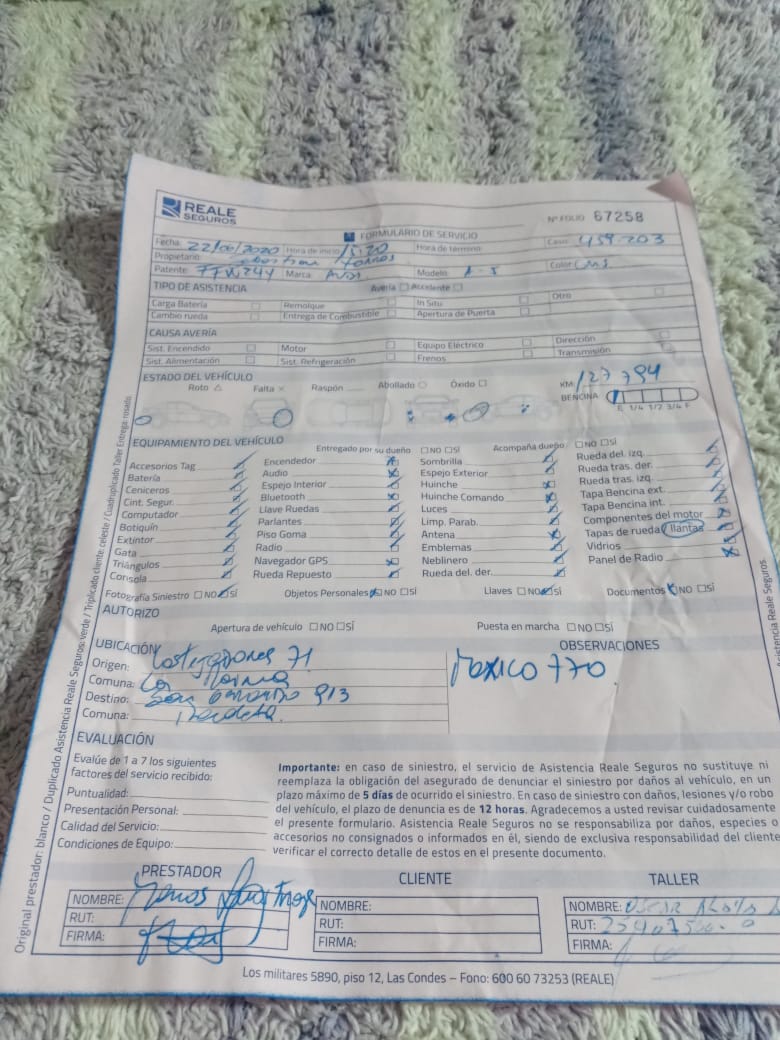 REALE
SEGUROS
Nº FOLIO 67258
FORMULARIO DE SERVICIO
Fecha: 22/06/2020 Hora de inicio Hora de término: Caso: 459203
Propietario:
Patente: Marca: Modelo: Color:
TIPO DE ASISTENCIA Avería Accidente
Carga Batería Remolque In Situ Otro
Cambio rueda Entrega de Combustible Apertura de Puerta
CAUSA AVERÍA
Sist. Encendido Motor Equipo Eléctrico Dirección
Sist. Alimentación Sist. Refrigeración Frenos Transmisión
ESTADO DEL VEHÍCULO
Roto Falta Raspón Abollado Óxido KM: 127794
BENCINA E 1/4 1/2 3/4 F
EQUIPAMIENTO DEL VEHÍCULO Entregado por su dueño NO SÍ Acompaña dueño NO SÍ
Accesorios Tag Encendedor Sombrilla Rueda del. izq.
Batería Audio Espejo Exterior Rueda tras. der.
Ceniceros Espejo Interior Huinche Rueda tras. izq.
Cint. Segur. Bluetooth Huinche Comando Tapa Bencina ext.
Computador Llave Ruedas Luces Tapa Bencina int.
Botiquín Parlantes Limp. Parab. Componentes del motor
Extintor Piso Goma Antena Tapas de rueda / llantas
Gata Radio Emblemas Vidrios
Triángulos Navegador GPS Neblinero Panel de Radio
Consola Rueda Repuesto Rueda del. der.
Fotografía Siniestro NO SÍ Objetos Personales NO SÍ Llaves NO SÍ Documentos NO SÍ
AUTORIZO
Apertura de vehículo NO SÍ Puesta en marcha NO SÍ
UBICACIÓN OBSERVACIONES
Origen: 71 Mexico 770
Comuna:
Destino: 913
Comuna:
EVALUACIÓN
Evalúe de 1 a 7 los siguientes
factores del servicio recibido:
Puntualidad:
Presentación Personal:
Calidad del Servicio:
Condiciones de Equipo:
Importante: en caso de siniestro, el servicio de Asistencia Reale Seguros no sustituye ni
reemplaza la obligación del asegurado de denunciar el siniestro por daños al vehículo, en un
plazo máximo de 5 días de ocurrido el siniestro. En caso de siniestro con daños, lesiones y/o robo
del vehículo, el plazo de denuncia es de 12 horas. Agradecemos a usted revisar cuidadosamente
el presente formulario. Asistencia Reale Seguros no se responsabiliza por daños, especies o
accesorios no consignados o informados en él, siendo de exclusiva responsabilidad del cliente
verificar el correcto detalle de estos en el presente documento.
PRESTADOR CLIENTE TALLER
NOMBRE: NOMBRE: NOMBRE: OSCAR
RUT: RUT: RUT:
FIRMA: FIRMA: FIRMA:
Los militares 5890, piso 12, Las Condes – Fono: 600 60 73253 (REALE)
Original prestador: blanco / Duplicado Asistencia Reale Seguros: verde / Triplicado cliente: celeste / Cuadruplicado Taller Entrega: rosado
Asistencia Reale Seguros